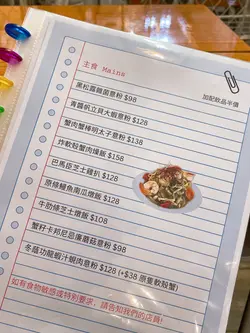 主食 Mains
加配飲品半價
黑松露雜菌意粉 $98
青醬帆立貝大蝦意粉 $128
蟹肉蟹棒明太子意粉 $138
炸軟殼蟹肉燴飯 $158
巴馬臣芝士雞扒 $128
原條鰻魚南瓜燴飯 $128
牛肋條芝士燴飯 $108
蟹籽卡邦尼忌廉蘑菇意粉 $98
冬蔭功龍蝦汁蜆肉意粉 $128 (+$38 原隻軟殼蟹)
如有食物敏感或特別要求，請告知我們的店員!